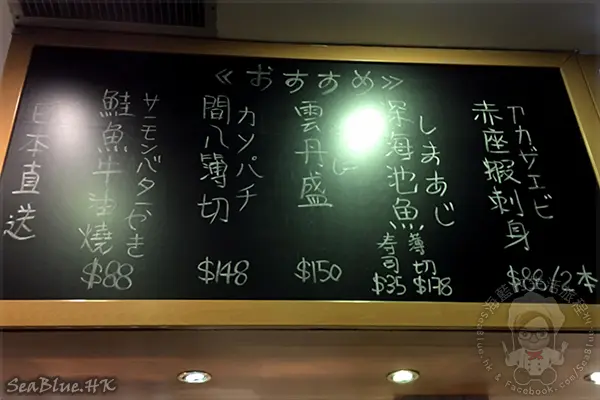 ≪おすすめ≫
アカザエビ
赤座蝦刺身
$88/2本
しまあじ
深海池魚
薄切
$178
寿司
$35
雲丹盛
$150
カンパチ
間八薄切
$148
サーモンバターやき
鮭魚牛油燒
$88
日本直送
SeaBlue.HK